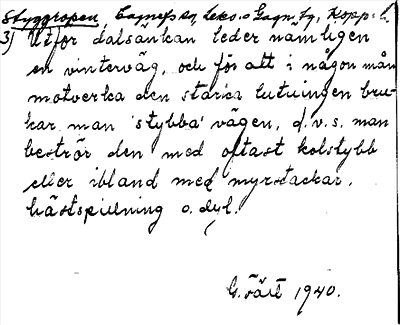 Styggropen, Bagnefs sn, Leks. o Gagn. tg, Kopp. l.
3) Utför dalsänkan leder nämligen
en vinterväg, och för att i någon mån
motverka den starka lutningen bru-
kar man 'stybba' vägen, d.v.s. man
beströr den med oftast kolstybb
eller ibland med myrstackar,
hästspillning o. dyl.
G. 1940.